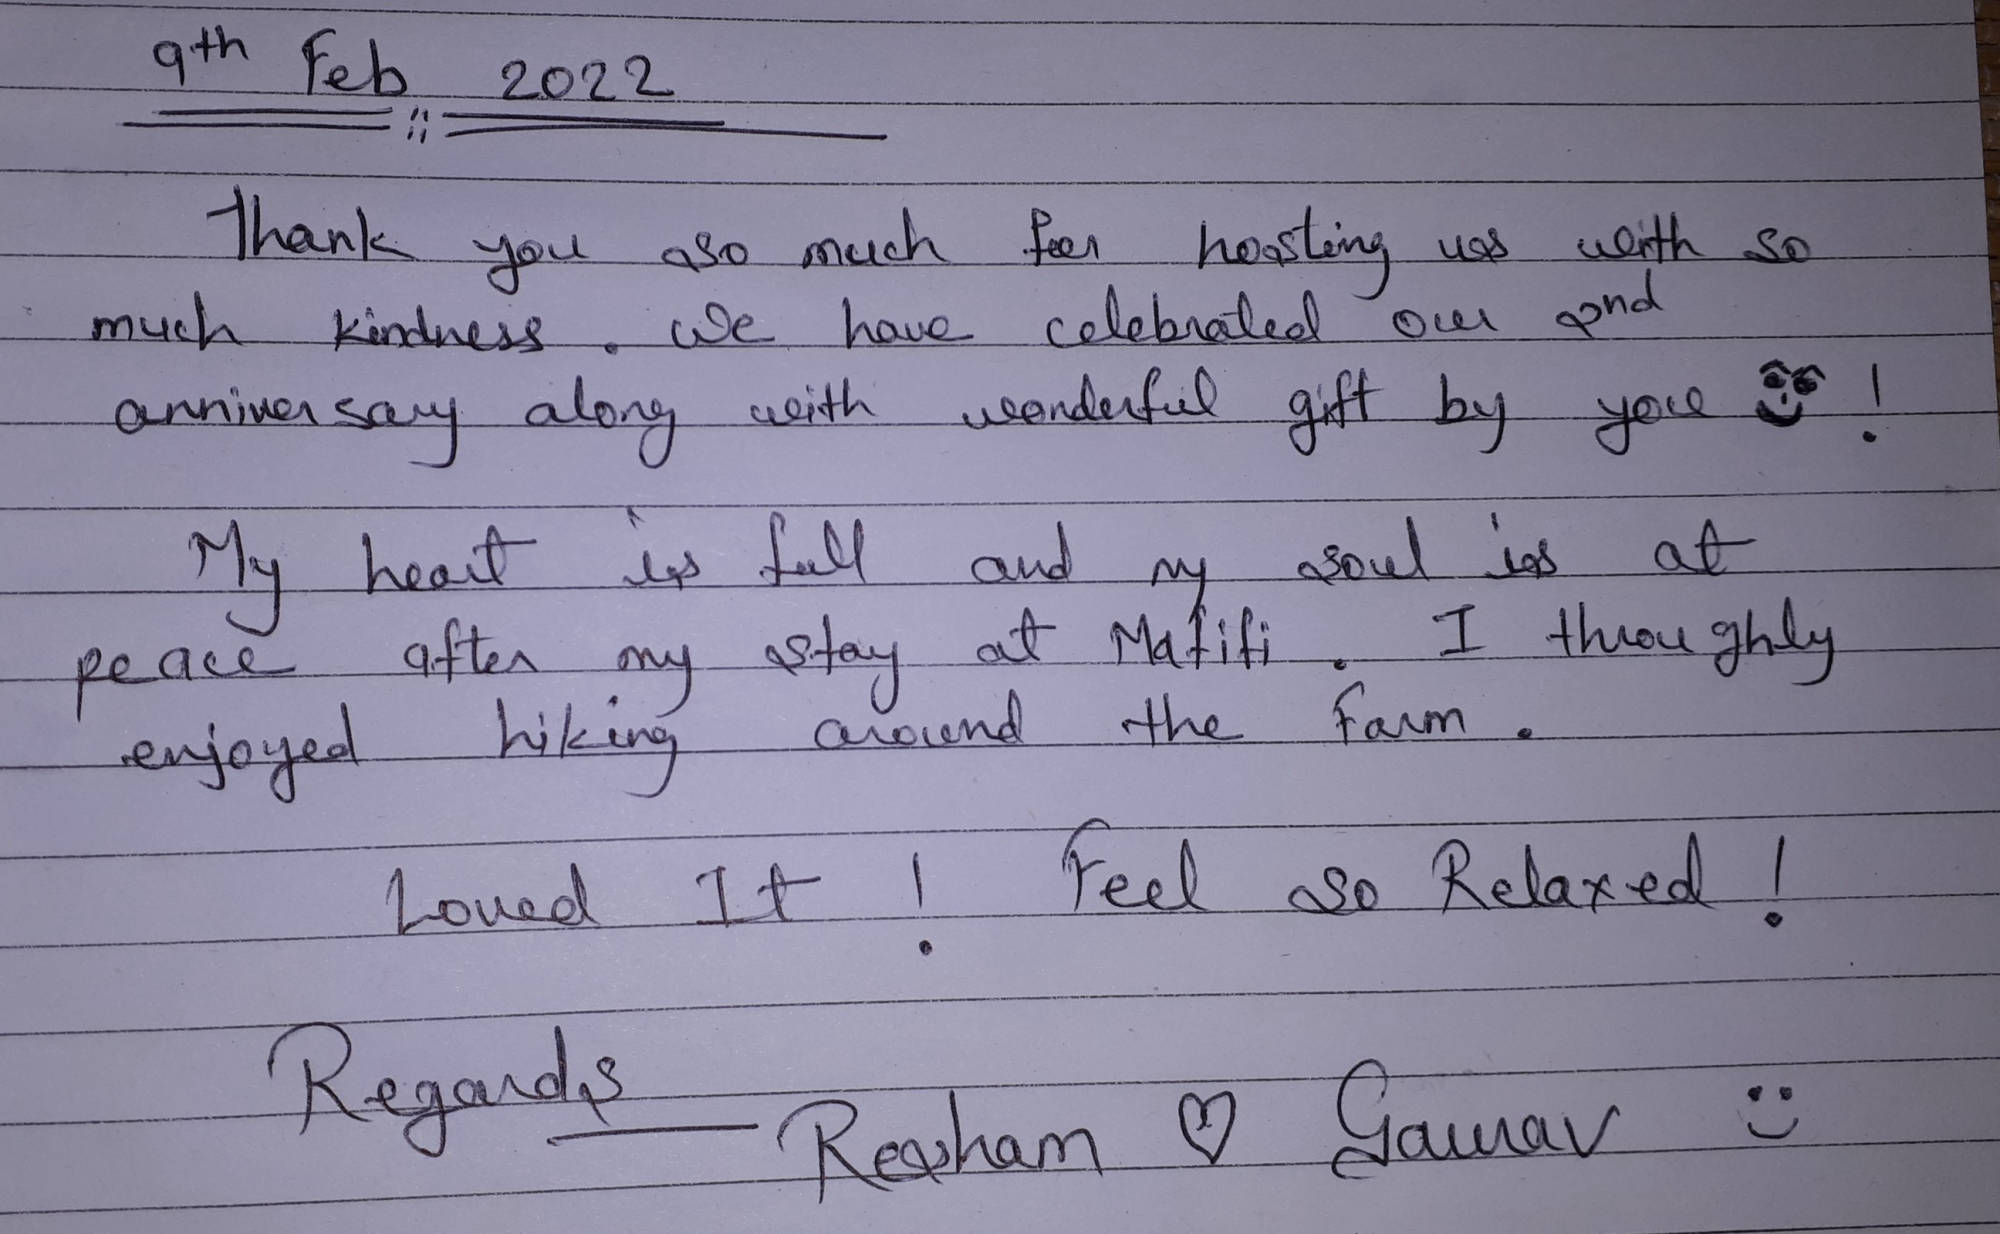 9th Feb 2022
Thank you so much for hosting us with so
much kindness. We have celebrated our 2nd
anniversay along with wonderful gift by you !
My heart is full and my soul is at
peace after my stay at Mafifi. I throughly
enjoyed hiking around the Farm.
Loved It ! Feel so Relaxed !
Regards
Resham ♡ Gaurav :)